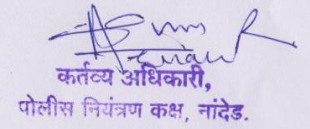 कर्तव्य अधिकारी,
पोलीस नियंत्रण कक्ष, नांदेड.